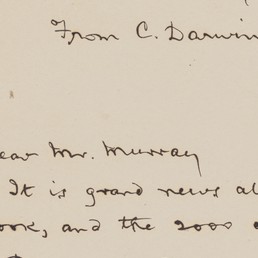 From C. Darwin
ear Mr. Murray
It is grand news a
ook, and the 2000